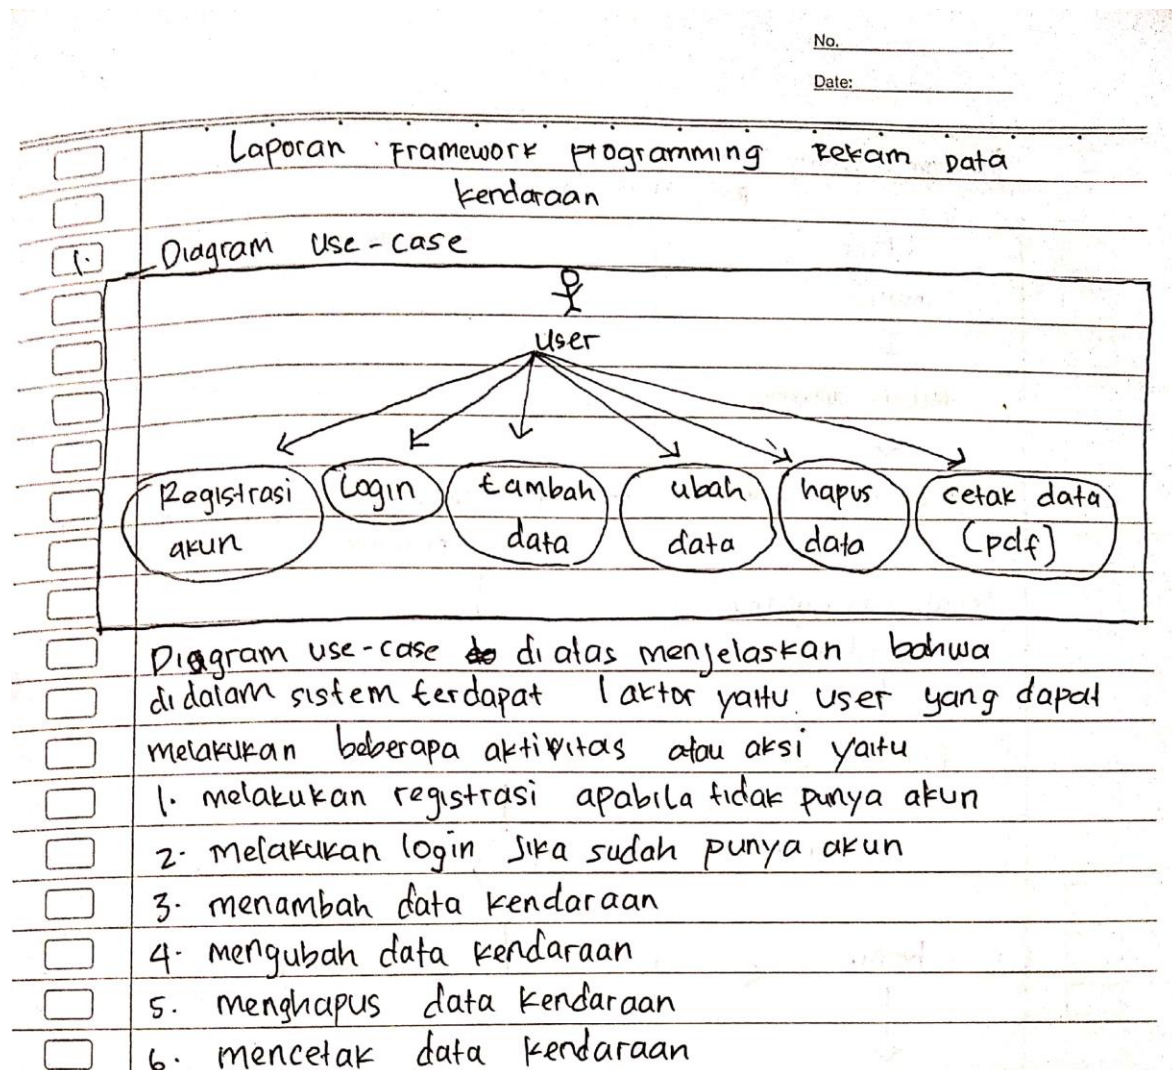 No.
Date:
Laporan Framework Programming Rekam Data
kendaraan
1. Diagram use-case
user
Registrasi akun
Login
tambah data
ubah data
hapus data
cetak data (pdf)
Diagram use-case di atas menjelaskan bahwa
di dalam sistem terdapat 1 aktor yaitu user yang dapat
melakukan beberapa aktivitas atau aksi yaitu
1. melakukan registrasi apabila tidak punya akun
2. melakukan login jika sudah punya akun
3. menambah data kendaraan
4. mengubah data kendaraan
5. menghapus data kendaraan
6. mencetak data kendaraan